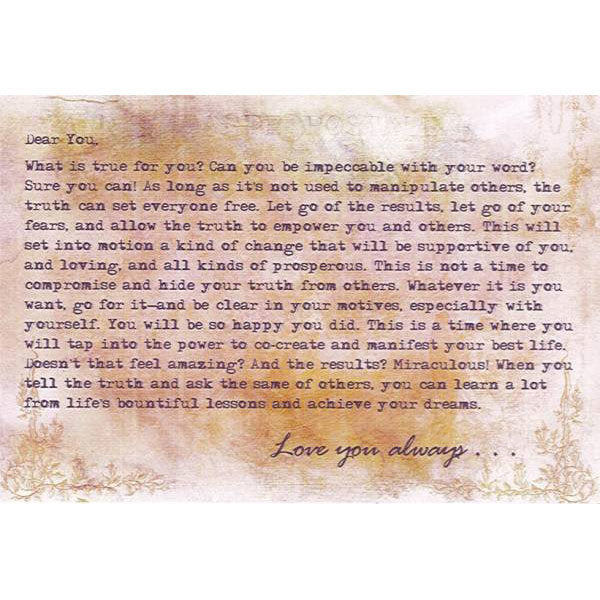 Dear You,
What is true for you? Can you be impeccable with your word?
Sure you can! As long as it's not used to manipulate others, the
truth can set everyone free. Let go of the results, let go of your
fears, and allow the truth to empower you and others. This will
set into motion a kind of change that will be supportive of you,
and loving, and all kinds of prosperous. This is not a time to
compromise and hide your truth from others. Whatever it is you
want, go for it—and be clear in your motives, especially with
yourself. You will be so happy you did. This is a time where you
will tap into the power to co-create and manifest your best life.
Doesn't that feel amazing? And the results? Miraculous! When you
tell the truth and ask the same of others, you can learn a lot
from life's bountiful lessons and achieve your dreams.
Love you always . . .